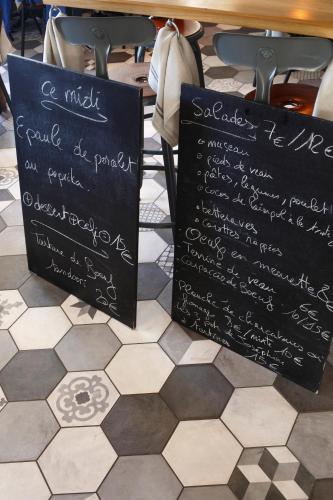 Ce midi
Epaule de porcelet
au paprika.
+ dessert + café + 15€
Tartare de Boeuf
tandori 20€
Salades 7€/12€
• museau
• pieds de veau
• pâtes, légumes, poulet
• cocos de Paimpol à la
• betteraves
• carottes rapées
Oeufs en meurette 8€
Terrine de veau 6€
Carpaccio de Boeuf 10/15€
Planche de charcuterie ou
15€